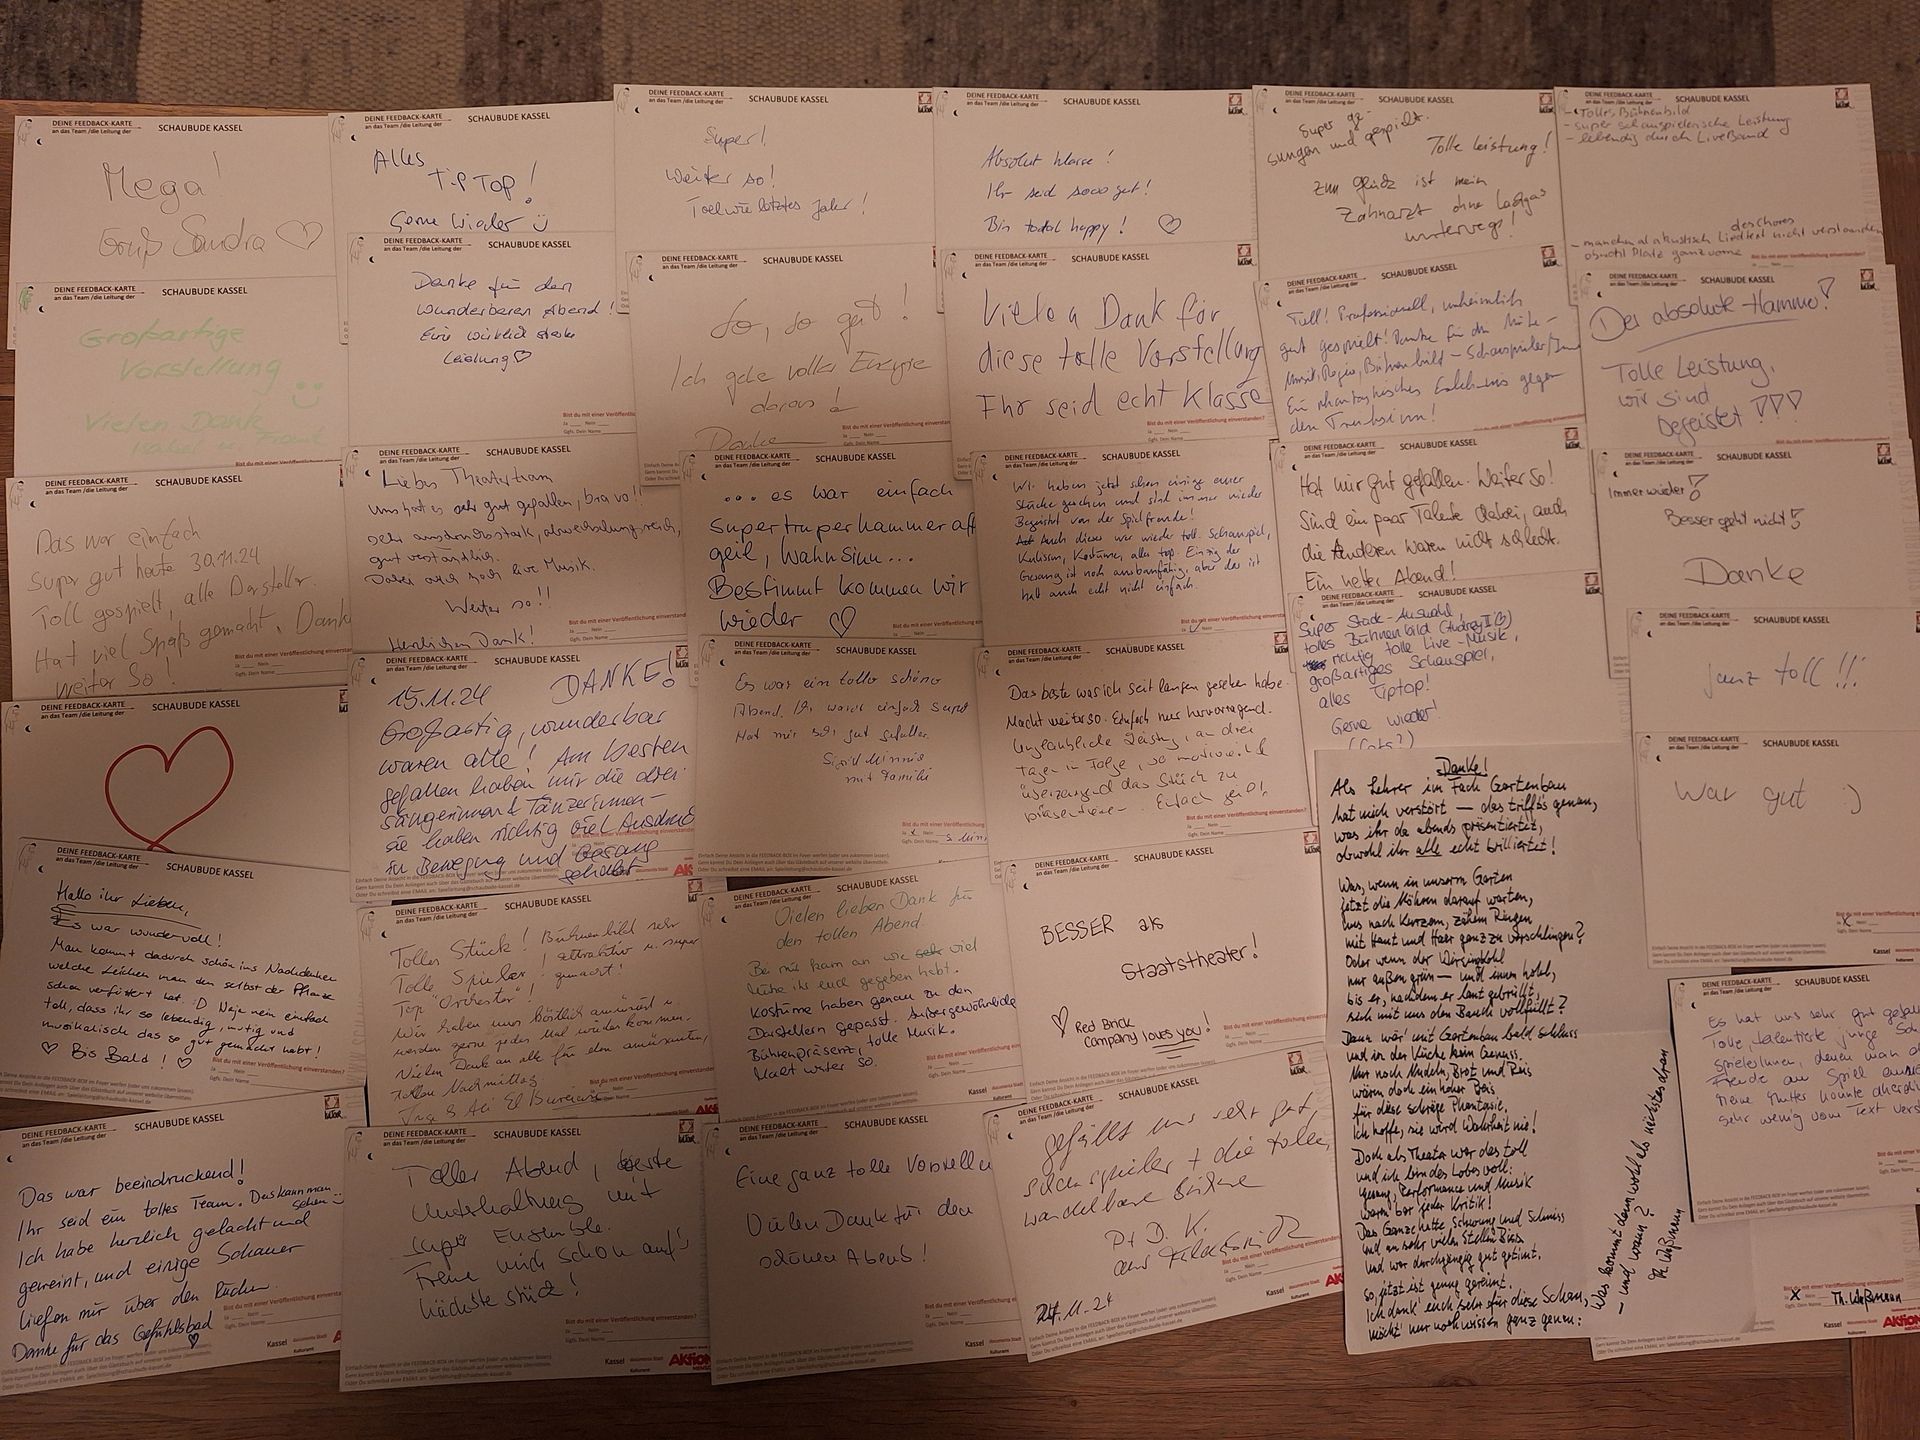 DEINE FEEDBACK-KARTE
an das Team /die Leitung der
SCHAUBUDE KASSEL
Mega!
Gruß Sandra ♡
DEINE FEEDBACK-KARTE
an das Team /die Leitung der
SCHAUBUDE KASSEL
Großartige
Vorstellung
Vielen Dank
DEINE FEEDBACK-KARTE
an das Team /die Leitung der
SCHAUBUDE KASSEL
Das war einfach
super gut heute 30.11.24
Toll gespielt, alle Darsteller.
Hat viel Spaß gemacht. Danke
weiter so!
DEINE FEEDBACK-KARTE
an das Team /die Leitung der
SCHAUBUDE KASSEL
DEINE FEEDBACK-KARTE
an das Team /die Leitung der
SCHAUBUDE KASSEL
Hallo ihr Lieben,
Es war wundervoll!
Man kommt dadurch schön ins Nachdenken
welche Leichen man den selbst der Pflanze
schon verfüttert hat :D Naja nein einfach
toll, dass ihr so lebendig, mutig und
musikalisch das so gut gemacht habt!
♡ Bis Bald! ♡
DEINE FEEDBACK-KARTE
an das Team /die Leitung der
SCHAUBUDE KASSEL
Das war beeindruckend!
Ihr seid ein tolles Team. Das kann man
sehen
Ich habe herzlich gelacht und
geweint, und einige Schauer
liefen mir über den Rücken.
Danke für das Gefühlsbad
DEINE FEEDBACK-KARTE
an das Team /die Leitung der
SCHAUBUDE KASSEL
Alles
Tip Top!
Gerne Wieder
DEINE FEEDBACK-KARTE
an das Team /die Leitung der
SCHAUBUDE KASSEL
Danke für den
wunderbaren Abend!
Eine wirklich starke
Leistung ♡
DEINE FEEDBACK-KARTE
an das Team /die Leitung der
SCHAUBUDE KASSEL
Liebes Theaterteam
uns hat es sehr gut gefallen, bravo!!
sehr ausdrucksstark, abwechslungsreich,
gut verständlich.
Dabei auch noch live Musik.
Weiter so!!
Herzlichen Dank!
DEINE FEEDBACK-KARTE
an das Team /die Leitung der
SCHAUBUDE KASSEL
15.11.24 DANKE!
Großartig, wunderbar
waren alle! Am besten
gefallen haben mir die drei
Sängerinnen & Tänzerinnen –
sie haben richtig viel Ausdruck
in Bewegung und Gesang
gehabt
DEINE FEEDBACK-KARTE
an das Team /die Leitung der
SCHAUBUDE KASSEL
Tolles Stück! Bühnenbild sehr
Tolle Spieler! attraktiv u. super
Top "Orchester"! gemacht!
Wir haben uns köstlich amüsiert u.
werden gerne jedes Mal wieder kommen.
Vielen Dank an alle für den amüsanten,
tollen Nachmittag
DEINE FEEDBACK-KARTE
an das Team /die Leitung der
SCHAUBUDE KASSEL
Toller Abend, beste
Unterhaltung mit
super Ensemble.
Freue mich schon auf's
nächste Stück!
DEINE FEEDBACK-KARTE
an das Team /die Leitung der
SCHAUBUDE KASSEL
Super!
Weiter so!
Toll wie letztes Jahr!
DEINE FEEDBACK-KARTE
an das Team /die Leitung der
SCHAUBUDE KASSEL
So, so gut!
Ich gehe voller Energie
daraus!
Danke
DEINE FEEDBACK-KARTE
an das Team /die Leitung der
SCHAUBUDE KASSEL
... es war einfach
supertruperhammeraff
geil, Wahnsinn...
Bestimmt kommen wir
wieder ♡
DEINE FEEDBACK-KARTE
an das Team /die Leitung der
SCHAUBUDE KASSEL
Es war ein toller schöner
Abend. Ihr wart einfach super
Hat mir sehr gut gefallen.
mit Familie
DEINE FEEDBACK-KARTE
an das Team /die Leitung der
SCHAUBUDE KASSEL
Vielen lieben Dank für
den tollen Abend
Bei mir kam an wie sehr viel
Mühe ihr euch gegeben habt.
Kostüme haben genau zu den
Darstellern gepasst. Außergewöhnliche
Bühnenpräsenz, tolle Musik.
Macht weiter so.
DEINE FEEDBACK-KARTE
an das Team /die Leitung der
SCHAUBUDE KASSEL
Eine ganz tolle
Vielen Dank für den
schönen Abend!
DEINE FEEDBACK-KARTE
an das Team /die Leitung der
SCHAUBUDE KASSEL
Absolut klasse!
Ihr seid sooo gut!
Bin total happy! ♡
DEINE FEEDBACK-KARTE
an das Team /die Leitung der
SCHAUBUDE KASSEL
Vielen Dank für
diese tolle Vorstellung
Ihr seid echt Klasse
DEINE FEEDBACK-KARTE
an das Team /die Leitung der
SCHAUBUDE KASSEL
Wir haben jetzt schon einige eurer
Stücke gesehen und sind immer wieder
Begeistert von der Spielfreude!
Auch dieses war wieder toll. Schauspiel,
Kulissen, Kostüme, alles top. Einzig der
Gesang ist noch ausbaufähig, aber das ist
halt auch echt nicht einfach.
DEINE FEEDBACK-KARTE
an das Team /die Leitung der
SCHAUBUDE KASSEL
Das beste was ich seit langem gesehen habe.
Macht weiter so. Einfach nur hervorragend.
Unglaubliche Leistung, an drei
Tagen in Folge, so motiviert &
überzeugend das Stück zu
präsentieren. Einfach geil!
DEINE FEEDBACK-KARTE
an das Team /die Leitung der
SCHAUBUDE KASSEL
BESSER als
Staatstheater!
♡ Red Brick
Company loves you!
DEINE FEEDBACK-KARTE
an das Team /die Leitung der
SCHAUBUDE KASSEL
gefällt uns sehr gut,
Schauspieler + die tolle,
wandelbare Bühne
P + D. K.
aus
24.11.24
DEINE FEEDBACK-KARTE
an das Team /die Leitung der
SCHAUBUDE KASSEL
Super ge-
sungen und gespielt.
Tolle Leistung!
Zum Glück ist mein
Zahnarzt ohne Lachgas
unterwegs!
DEINE FEEDBACK-KARTE
an das Team /die Leitung der
SCHAUBUDE KASSEL
Toll! Professionell, unheimlich
gut gespielt! Danke für die Mühe –
Musik, Regie, Bühnenbild – Schauspieler/Innen
Ein phantastisches Erlebnis gegen
den Trübsinn!
DEINE FEEDBACK-KARTE
an das Team /die Leitung der
SCHAUBUDE KASSEL
Hat mir gut gefallen. Weiter so!
Sind ein paar Talente dabei, auch
die Anderen waren nicht schlecht.
Ein netter Abend!
DEINE FEEDBACK-KARTE
an das Team /die Leitung der
SCHAUBUDE KASSEL
Super Stück-Auswahl
tolles Bühnenbild (Audrey II)
richtig tolle Live-Musik,
großartiges Schauspiel,
alles Tiptop!
Gerne wieder!
(Cats?)
Danke!
Als Lehrer im Fach Gartenbau
hat mich verstört – das trifft's genau,
was ihr da abends präsentiertet,
obwohl ihr alle echt brilliertet!
Was, wenn in unserm Garten
jetzt die Möhren darauf warten,
uns nach kurzem, zähem Ringen
mit Haut und Haar ganz zu verschlingen?
Oder wenn der Wirsingkohl
nur außen grün – und innen hohl,
bis er, nachdem er laut gebrüllt,
sich mit uns den Bauch vollfüllt?
Dann wär' mit Gartenbau bald Schluss
und in der Küche kein Genuss.
Nur noch Nudeln, Brot und Reis
wären doch ein hoher Preis
für diese schräge Phantasie.
Ich hoffe, sie wird Wahrheit nie!
Doch als Theater war das toll
und ich bin des Lobes voll:
Gesang, Performance und Musik
warn bar jeder Kritik!
Das Ganze hatte Schwung und Schmiss
und an sehr vielen Stellen Biss
und war durchgängig gut getimt.
So, jetzt ist genug gereimt.
Ich dank' euch sehr für diese Schau,
möcht' nur noch wissen ganz genau:
Was kommt denn wohl als nächstes dran
– und wann?
DEINE FEEDBACK-KARTE
an das Team /die Leitung der
SCHAUBUDE KASSEL
- Tolles Bühnenbild
- super schauspielerische Leistung
- lebendig durch Liveband
des Chores
- manchmal akustisch Liedtext nicht verstanden
obwohl Platz ganz vorne
DEINE FEEDBACK-KARTE
an das Team /die Leitung der
SCHAUBUDE KASSEL
Der absolute Hammer!
Tolle Leistung,
wir sind
begeistert!!!
DEINE FEEDBACK-KARTE
an das Team /die Leitung der
SCHAUBUDE KASSEL
Immer wieder!
Besser geht nicht!
Danke
DEINE FEEDBACK-KARTE
an das Team /die Leitung der
SCHAUBUDE KASSEL
ganz toll!!!
DEINE FEEDBACK-KARTE
an das Team /die Leitung der
SCHAUBUDE KASSEL
War gut :)
DEINE FEEDBACK-KARTE
an das Team /die Leitung der
SCHAUBUDE KASSEL
Es hat uns sehr gut
Tolle, talentierte junge
Spielerinnen, denen man
Freude am Spiel
Meine Mutter konnte
sehr wenig vom Text